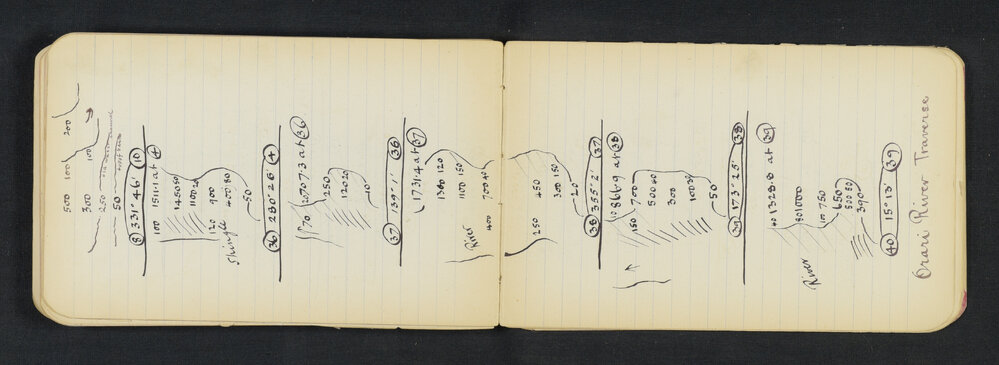 500 100 200
300 100
250
50
8 331° 46' 10
100 1511·1 at 4
1450 50
1100 20
120 900
Shingle 400 80
50
36 280° 26' 4
70 2707·3 at 36
250
120 20
10
37 139° 1' 36
1731·4 at 37
1380 120
1100 150
River
400 700 40
250 450
300 150
20
38 355° 2' 37
10 866·9 at 38
150 700
500 40
300
100 30
50
39 173° 25' 38
40 1328·8 at 39
80 1000
River 100 750
650
500 50
390
40 15° 13' 39
Orari River Traverse